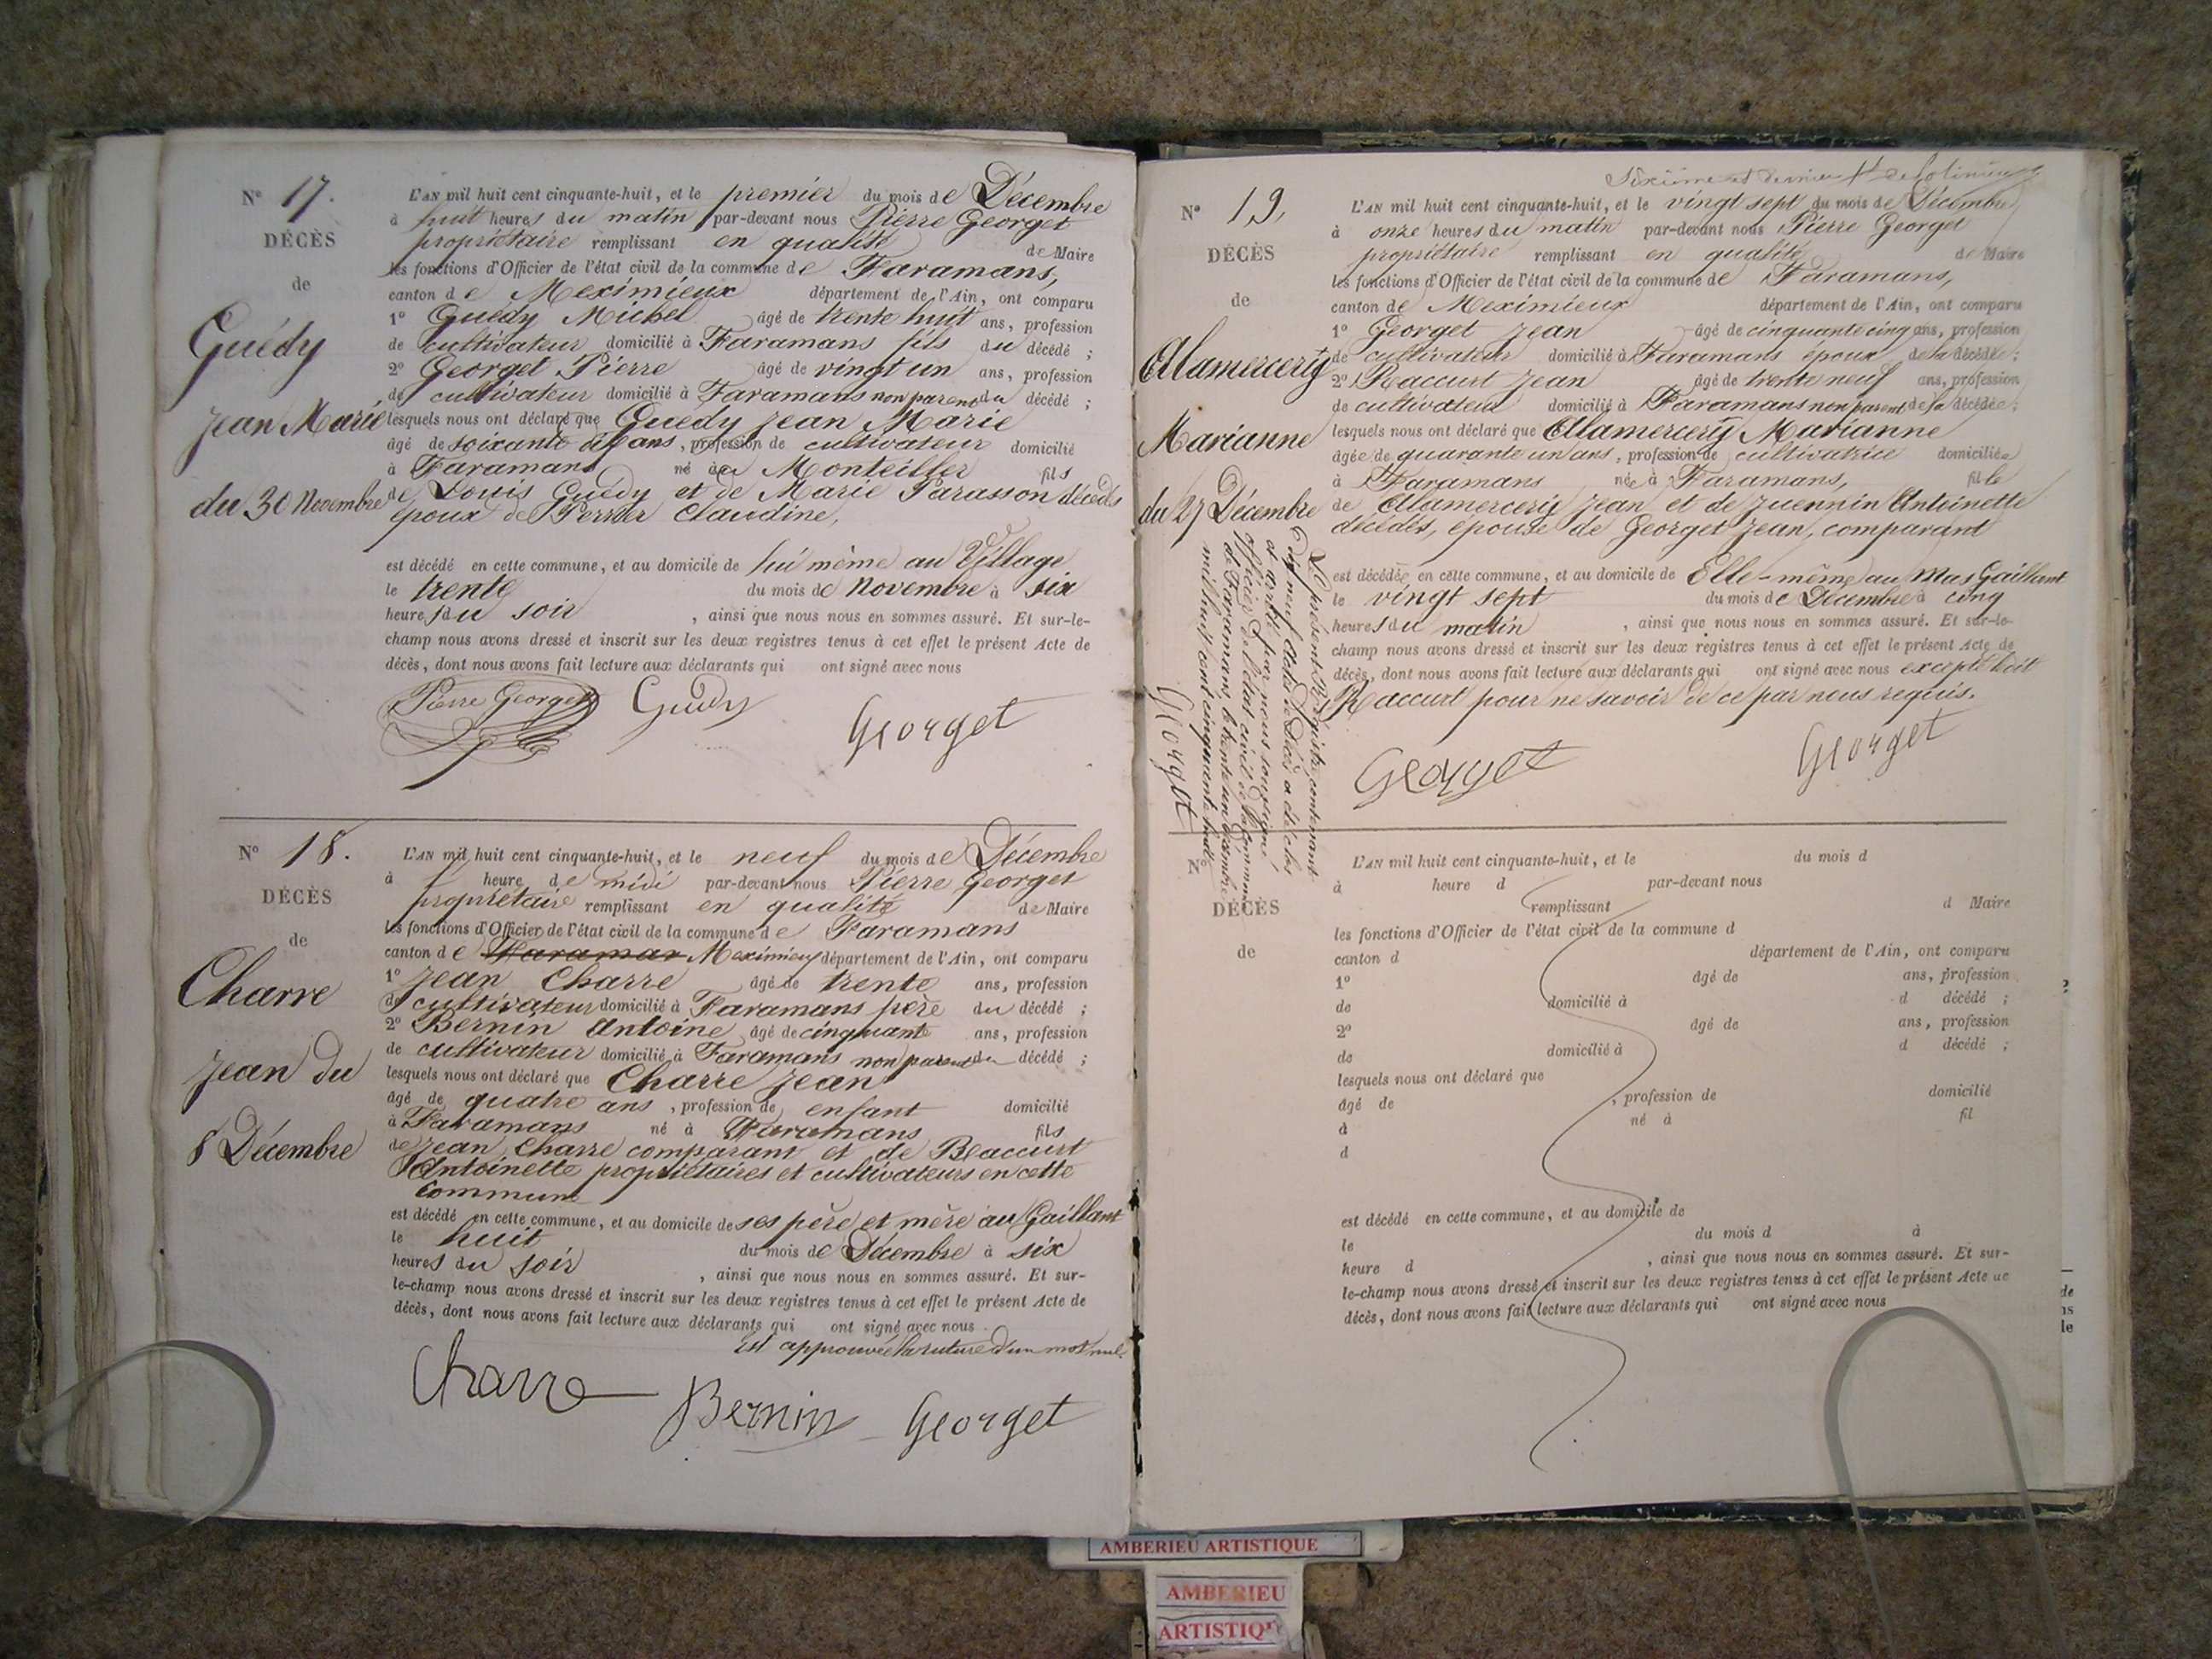 N° 17.
DÉCÈS
de
Guédy
Jean Marie
du 30 Novembre
L'AN mil huit cent cinquante-huit, et le premier du mois de Décembre
à huit heures du matin par-devant nous Pierre Georget
propriétaire remplissant en qualité de Maire
les fonctions d'Officier de l'état civil de la commune de Faramans,
canton de Meximieux département de l'Ain, ont comparu
1° Guédy Michel âgé de trente huit ans, profession
de cultivateur domicilié à Faramans fils du décédé ;
2° Georget Pierre âgé de vingt un ans, profession
de cultivateur domicilié à Faramans non parent du décédé ;
lesquels nous ont déclaré que Guédy Jean Marie
âgé de soixante dix ans, profession de cultivateur domicilié
à Faramans né au Monteiller fils
de Louis Guédy et de Marie Parasson décédés
époux de Perrier Claudine,
est décédé en cette commune, et au domicile de lui même au Village
le trente du mois de Novembre à six
heures du soir , ainsi que nous nous en sommes assuré. Et sur-le-
champ nous avons dressé et inscrit sur les deux registres tenus à cet effet le présent Acte de
décès, dont nous avons fait lecture aux déclarants qui ont signé avec nous
Pierre Georget Guédy Georget
N° 18.
DÉCÈS
de
Charre
Jean du
8 Décembre
L'AN mil huit cent cinquante-huit, et le neuf du mois de Décembre
à heure de midi par-devant nous Pierre Georget
propriétaire remplissant en qualité de Maire
les fonctions d'Officier de l'état civil de la commune de Faramans
canton de Faraman Meximieux département de l'Ain, ont comparu
1° Jean Charre âgé de trente ans, profession
de cultivateur domicilié à Faramans père du décédé ;
2° Bernin Antoine âgé de cinquante ans, profession
de cultivateur domicilié à Faramans non parent du décédé ;
lesquels nous ont déclaré que Charre Jean
âgé de quatre ans , profession de enfant domicilié
à Faramans né à Faramans fils
de Jean Charre comparant et de Raccurt
Antoinette propriétaires et cultivateurs en cette
Commune
est décédé en cette commune, et au domicile de ses père et mère au Gaillant
le huit du mois de Décembre à six
heures du soir , ainsi que nous nous en sommes assuré. Et sur-
le-champ nous avons dressé et inscrit sur les deux registres tenus à cet effet le présent Acte de
décès, dont nous avons fait lecture aux déclarants qui ont signé avec nous .
Est approuvée la rature d'un mot nul.
Charre Bernin Georget
Sixième et dernier
N° 19.
DÉCÈS
de
Alamercery
Marianne
du 27 Décembre
L'AN mil huit cent cinquante-huit, et le vingt sept du mois de Décembre
à onze heures du matin par-devant nous Pierre Georget
propriétaire remplissant en qualité de Maire
les fonctions d'Officier de l'état civil de la commune de Faramans,
canton de Meximieux département de l'Ain, ont comparu
1° Georget Jean âgé de cinquante cinq ans, profession
de cultivateur domicilié à Faramans époux de la décédé ;
2° Raccurt Jean âgé de trente neuf ans, profession
de cultivateur domicilié à Faramans non parent de la décédée ;
lesquels nous ont déclaré que Alamercery Marianne
âgée de quarante un ans, profession de cultivatrice domiciliée
à Faramans née à Faramans, fille
de Alamercery Jean et de Juennin Antoinette
décédés, épouse de Georget Jean, comparant
est décédée en cette commune, et au domicile de Elle-même au Mas Gaillant
le vingt sept du mois de Décembre à cinq
heures du matin , ainsi que nous nous en sommes assuré. Et sur-le-
champ nous avons dressé et inscrit sur les deux registres tenus à cet effet le présent Acte de
décès, dont nous avons fait lecture aux déclarants qui ont signé avec nous excepté ledit
Raccurt pour ne savoir de ce par nous requis.
Georget Georget
Le présent Registre contenant
dix neuf Actes de Décès a été clos
et arrêté par nous soussigné
officier de l'état civil de la Commune
de Faramans, le trente un Décembre
mil huit cent cinquante huit.
Georget
N°
DÉCÈS
de
L'AN mil huit cent cinquante-huit, et le du mois d
à heure d par-devant nous
remplissant d Maire
les fonctions d'Officier de l'état civil de la commune d
canton d département de l'Ain, ont comparu
1° âgé de ans, profession
de domicilié à d décédé ;
2° âgé de ans, profession
de domicilié à d décédé ;
lesquels nous ont déclaré que
âgé de , profession de domicilié
à né à fil
d
est décédé en cette commune, et au domicile de
le du mois d à
heure d , ainsi que nous nous en sommes assuré. Et sur-
le-champ nous avons dressé et inscrit sur les deux registres tenus à cet effet le présent Acte de
décès, dont nous avons fait lecture aux déclarants qui ont signé avec nous
AMBERIEU ARTISTIQUE
AMBERIEU
ARTISTIQ